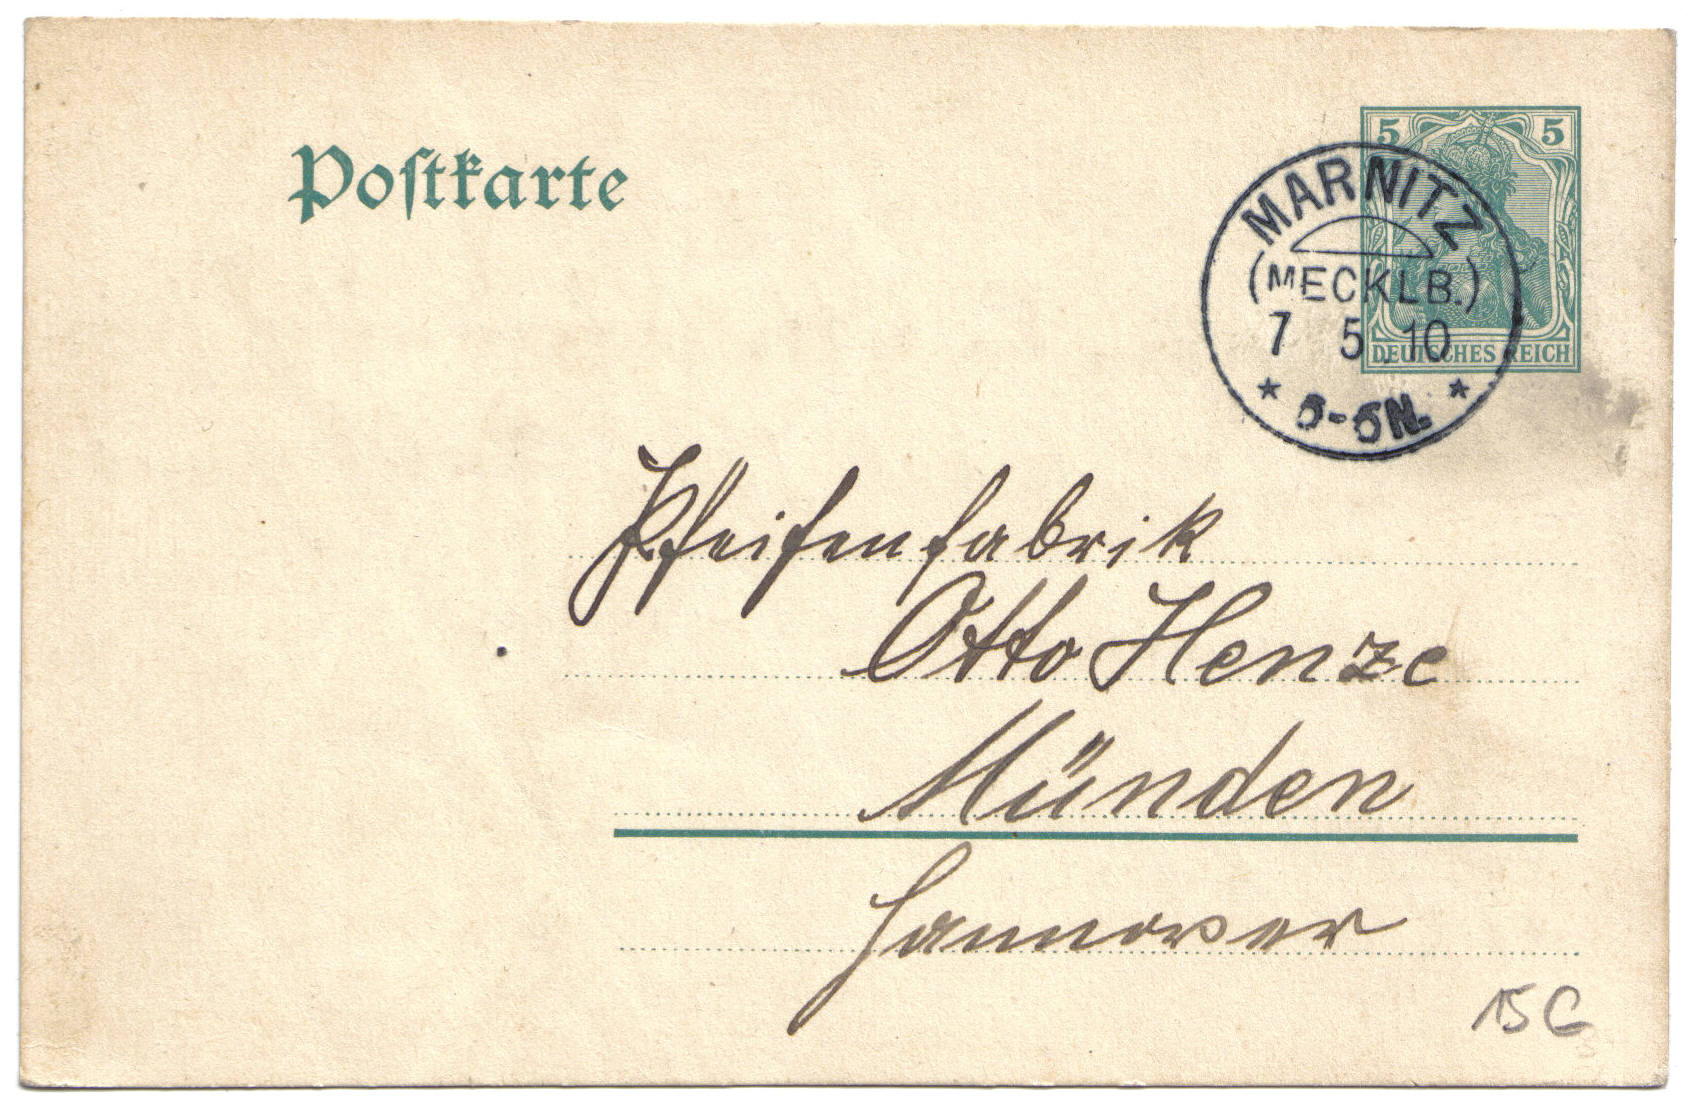 Postkarte
5 5
DEUTSCHES REICH
MARNITZ
(MECKLB.)
7 5.10
* 5-6N. *
Pfeifenfabrik
Otto Henze
Münden
Hannover